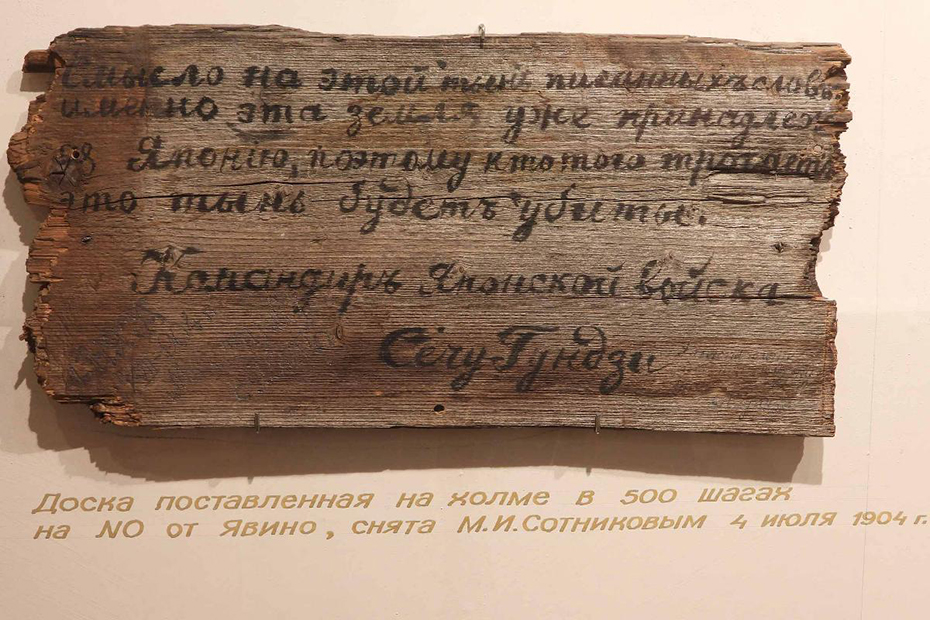 Смысло на этой тынь писанныхъ словъ
именно эта земля уже принадлеж
Японію, поэтому ктотого трогаетъ
это тынь будетъ убитые.
Командиръ Японской войска
Сечу-Гундзи
Доска поставленная на холме в 500 шагах
на NO от Явино, снята М.И.Сотниковым 4 июля 1904 г.